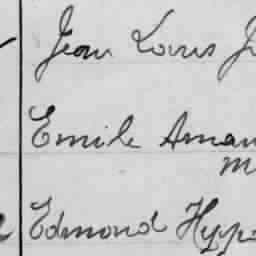 Jean Louis J
Emile Aman
m
Edmond Hypo